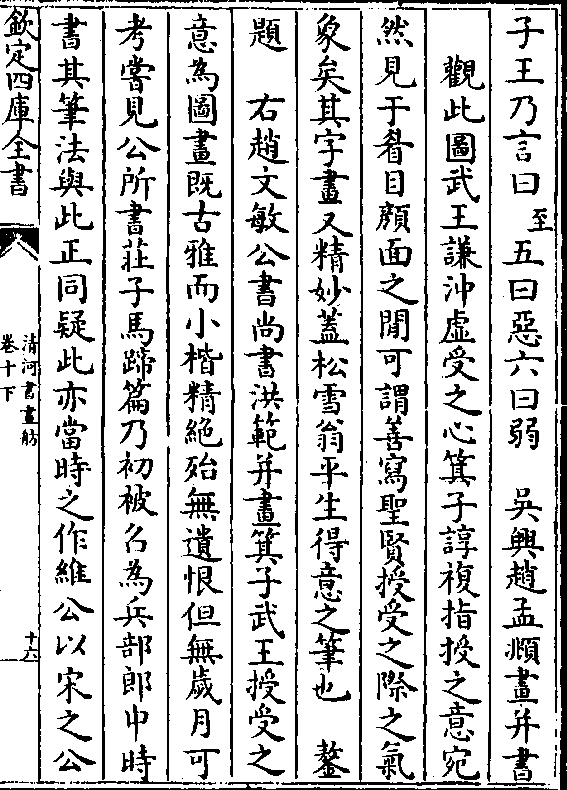 子王乃言曰至五曰惡六曰弱　吳興趙孟頫畫并書
觀此圖武王謙沖虛受之心箕子諄複指授之意宛
然見于眉目顔面之閒可謂善寫聖賢授受之際之氣
象矣其字畫又精妙蓋松雪翁平生得意之筆也　鏊
題　右趙文敏公書尚書洪範并畫箕子武王授受之
意為圖畫既古雅而小楷精絶殆無遺恨但無歲月可
考嘗見公所書莊子馬蹄篇乃初被召為兵部郎中時
書其筆法與此正同疑此亦當時之作維公以宋之公
欽定四庫全書
清河書畫舫
卷十下
十六